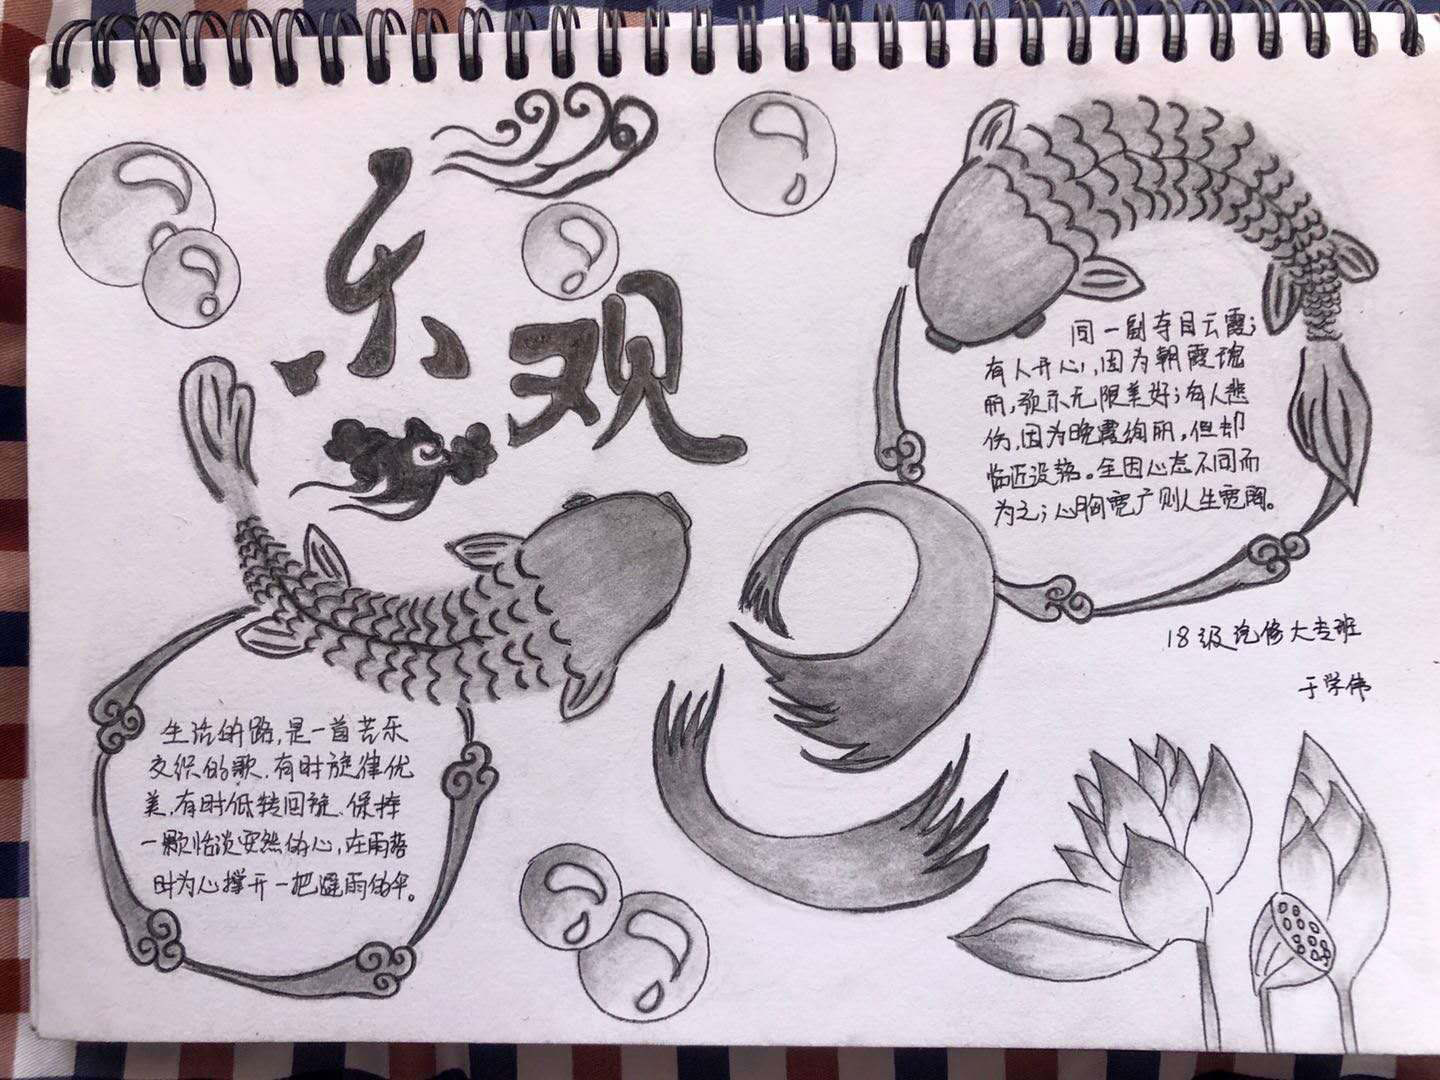 乐观
同一副夺目云霞;
有人开心,因为朝霞瑰
丽,预示无限美好;有人悲
伤,因为晚霞绚丽,但却
临近没落。全因心态不同而
为之;心胸宽广则人生宽阔。
18级汽修大专班
于学伟
生活的路,是一首苦乐
交织的歌.有时旋律优
美,有时低转回旋.保持
一颗恬淡安然的心,在雨落
时为心撑开一把避雨的伞。